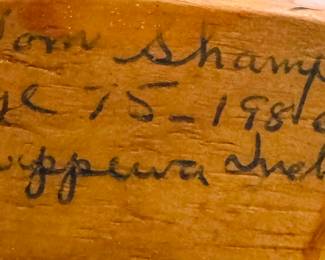 Tom Shamp
ge 75-198
ippewa Ind